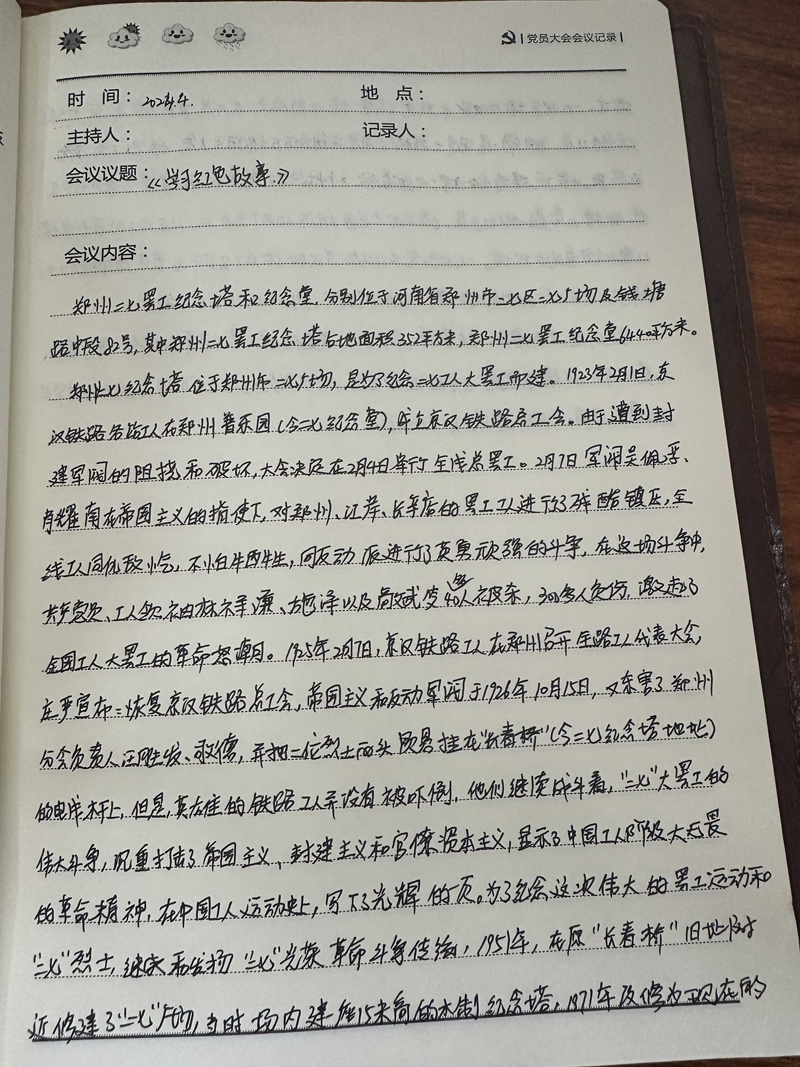 党员大会会议记录
时 间： 2024.4.
地 点：
主持人：
记录人：
会议议题：《学习红色故事》
会议内容：
郑州二七罢工纪念塔和纪念堂，分别位于河南省郑州市二七区二七广场及钱塘
路中段82号，其中郑州二七罢工纪念塔占地面积352平方米，郑州二七罢工纪念堂6440平方米。
郑州二七纪念塔位于郑州市二七广场，是为了纪念二七工人大罢工而建。1923年2月1日，京
汉铁路各站工人在郑州普乐园（今二七纪念堂），成立京汉铁路总工会。由于遭到封
建军阀的阻挠和破坏，大会决定在2月4日举行全线总罢工。2月7日军阀吴佩孚、
肖耀南在帝国主义的指使下，对郑州、江岸、长辛店的罢工工人进行了残酷镇压，全
线工人同仇敌忾，不怕牺牲，同反动派进行了英勇顽强的斗争，在这场斗争中，
共产党员、工人领袖林祥谦、施洋以及高斌等40余人被杀，300多人负伤，激起了
全国工人大罢工的革命怒潮。1925年2月7日，京汉铁路工人在郑州召开全路工人代表大会，
庄严宣布：恢复京汉铁路总工会，帝国主义和反动军阀于1926年10月15日，又杀害了郑州
分会负责人汪胜友、司文德，并把二位烈士的头颅悬挂在"长春桥"（今二七纪念塔地址）
的电线杆上，但是，英雄的铁路工人并没有被吓倒，他们继续战斗着，"二七"大罢工的
伟大斗争，沉重打击了帝国主义、封建主义和官僚资本主义，显示了中国工人阶级大无畏
的革命精神，在中国工人运动史上，写下了光辉的一页。为了纪念这次伟大的罢工运动和
"二七"烈士，继承和发扬"二七"光荣革命斗争传统，1951年，在原"长春桥"旧址及附
近修建了"二七"广场，当时场内建一座15米高的木制纪念塔，1971年改修为现在的